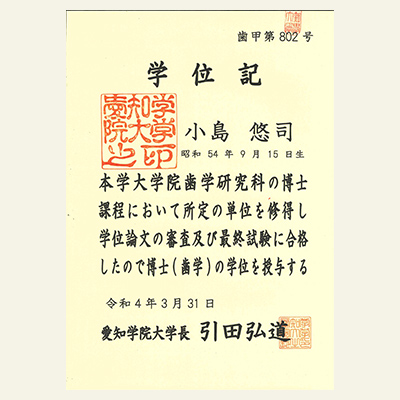 歯甲第802号
学位記
愛知学院大学之印
小島 悠司
昭和54年9月15日生
本学大学院歯学研究科の博士
課程において所定の単位を修得し
学位論文の審査及び最終試験に合格
したので博士(歯学)の学位を授与する
令和4年3月31日
愛知学院大学長 引田弘道